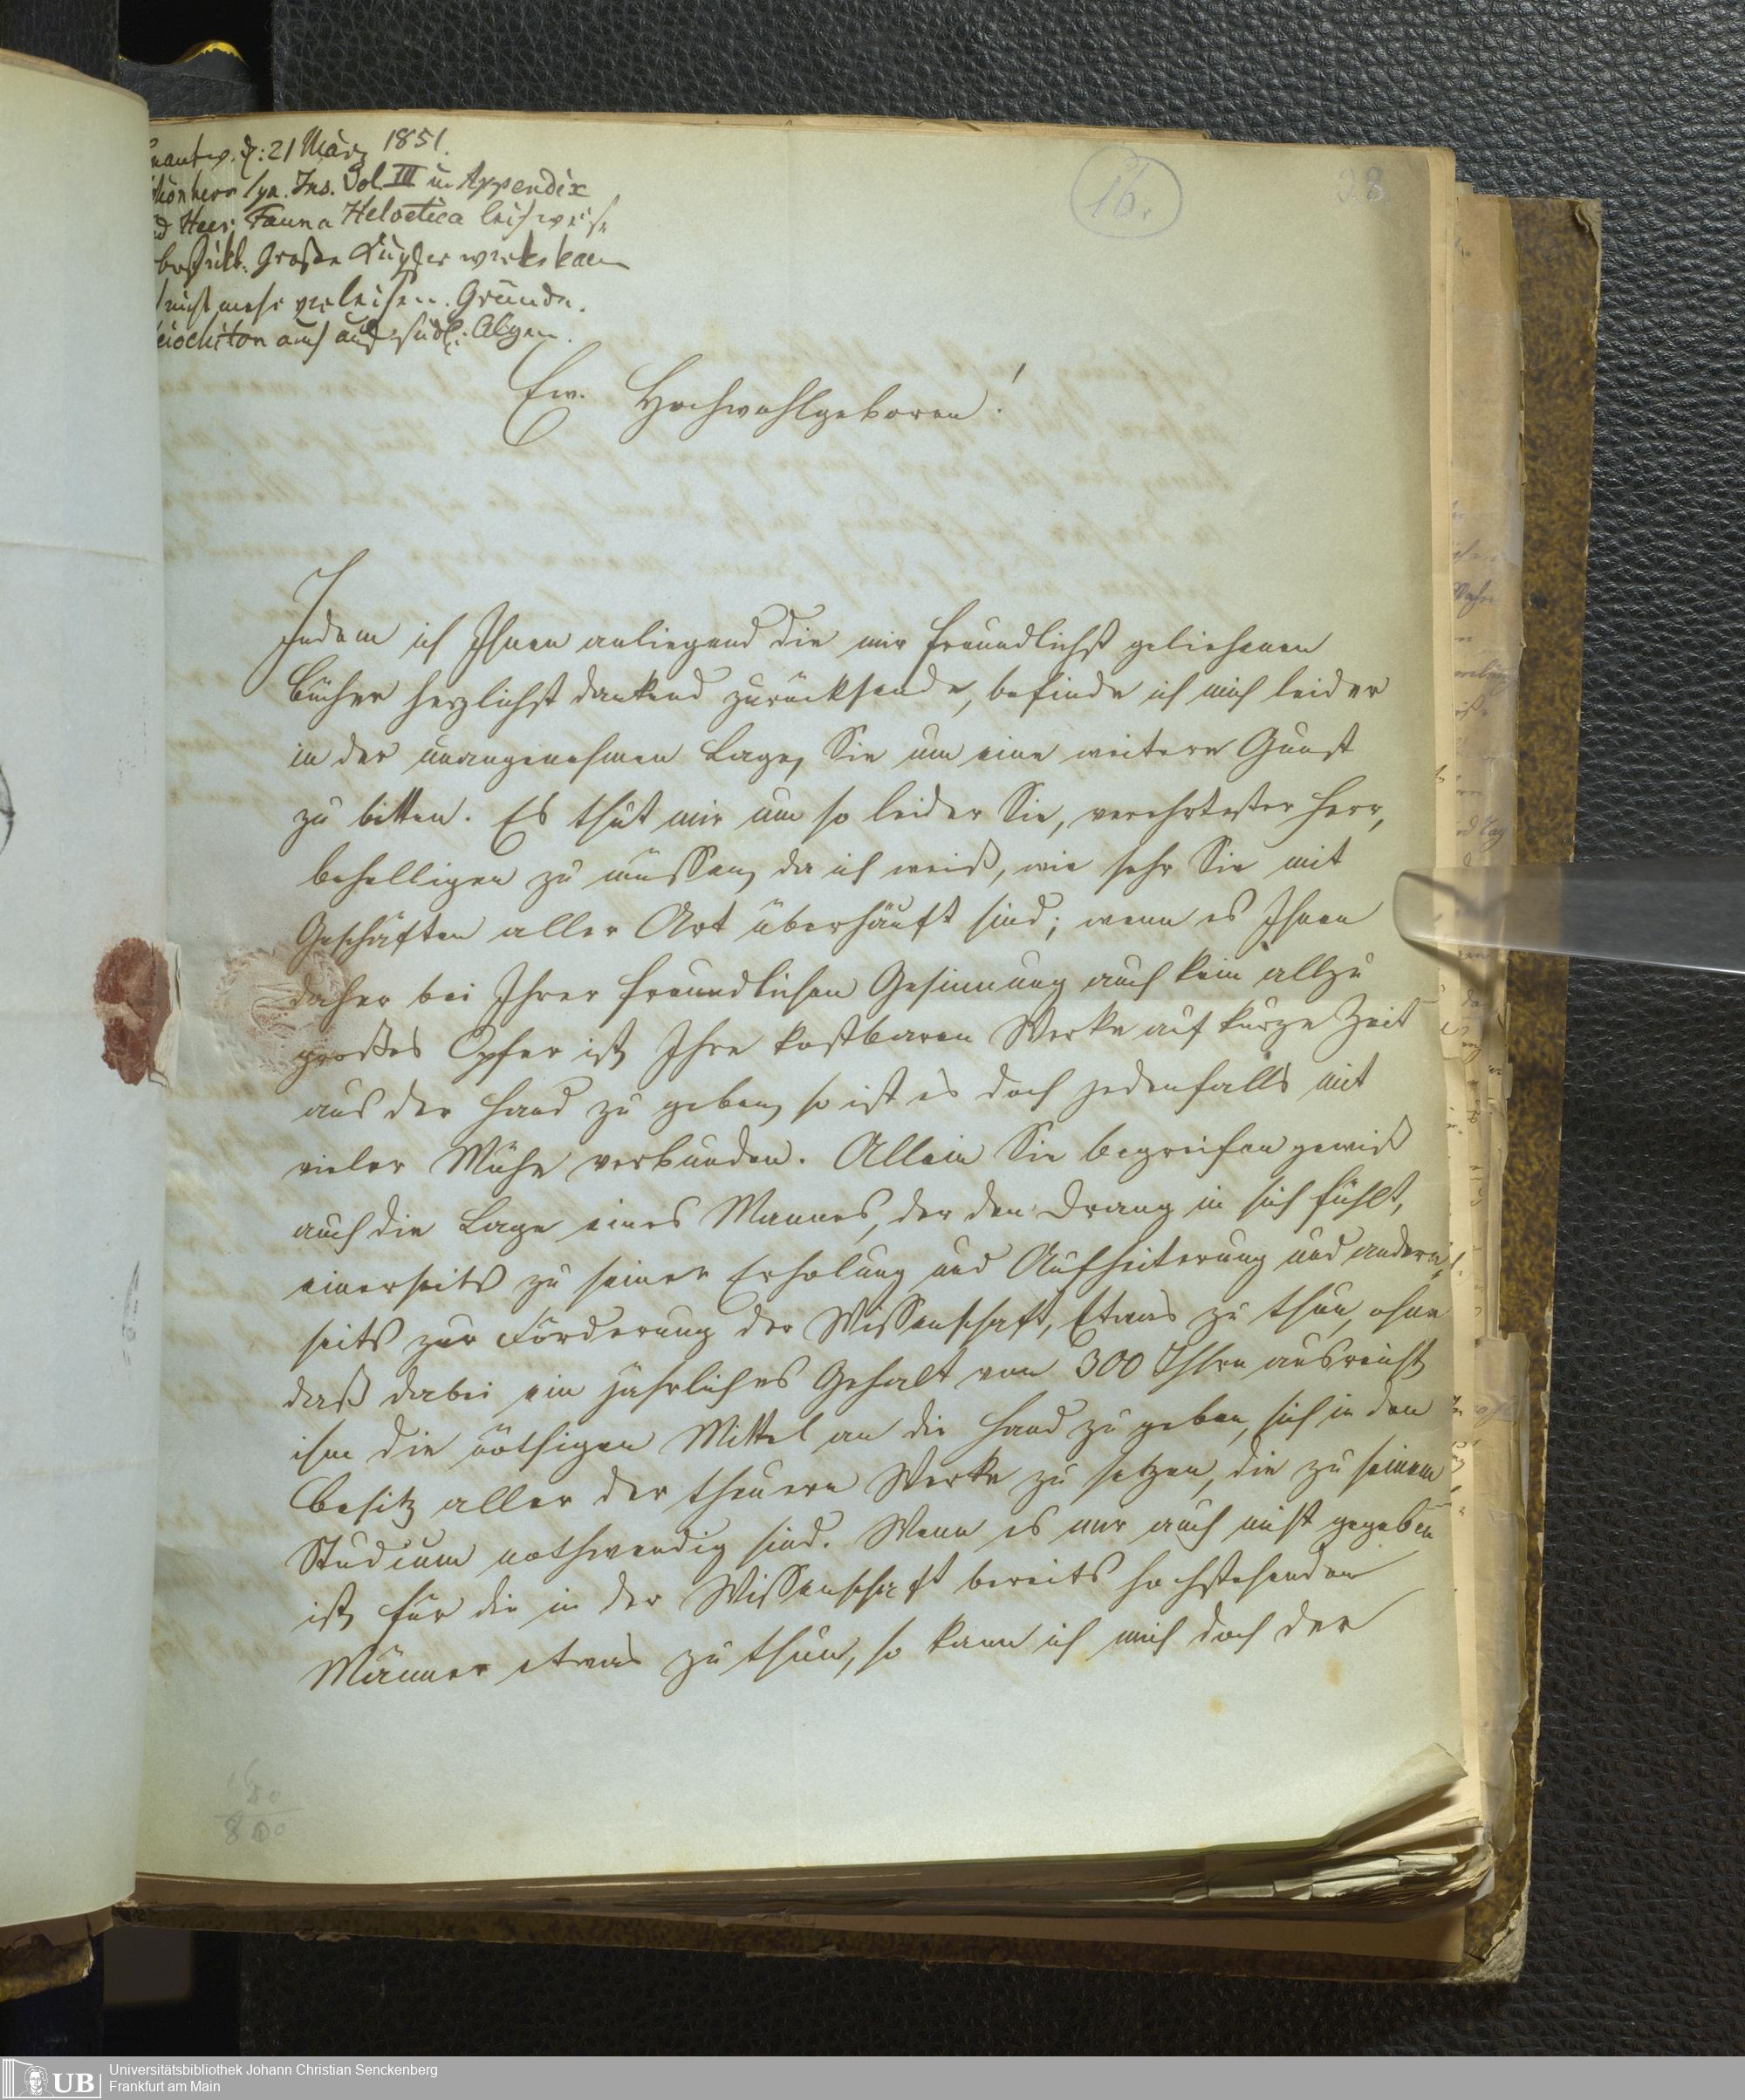 antw. d: 21 März 1851.
Schönherr Syn. Ins. Vol. III u Appendix
Heer Fauna Helvetica leihweise
Große Kupferwerke kann
nicht mehr verleihen. Gründe.
auch aus südl:
16.
28
Ew. Hochwohlgeboren!
Indem ich Ihnen anliegend die mir freundlichst geliehenen
Bücher herzlichst dankend zurücksende, befinde ich mich leider
in der unangenehmen Lage, Sie um eine weitere Gunst
zu bitten. Es thut mir um so leider Sie, verehrtester Herr,
behelligen zu müssen, da ich weiß, wie sehr Sie mit
Geschäften aller Art überhäuft sind; wenn es Ihnen
daher bei Ihrer freundlichen Gesinnung auch kein allzu
großes Opfer ist, Ihre kostbaren Werke auf kurze Zeit
aus der Hand zu geben, so ist es doch jedenfalls mit
vieler Mühe verbunden. Allein Sie begreifen gewiß
auch die Lage eines Mannes, der den Drang in sich fühlt,
einerseits zu seiner Erholung und Aufheiterung und anderer-
seits zur Förderung der Wissenschaft, Etwas zu thun, ohne
daß dabei ein jährliches Gehalt von 300 Thlrn ausreicht,
ihm die nöthigen Mittel an die Hand zu geben, sich in den
Besitz aller der theuern Werke zu setzen, die zu seinem
Studium nothwendig sind. Wenn es mir auch nicht gegeben
ist, für die in der Wissenschaft bereits hochstehenden
Männer etwas zu thun, so kann ich mich doch der
80
800
UB
Universitätsbibliothek Johann Christian Senckenberg
Frankfurt am Main